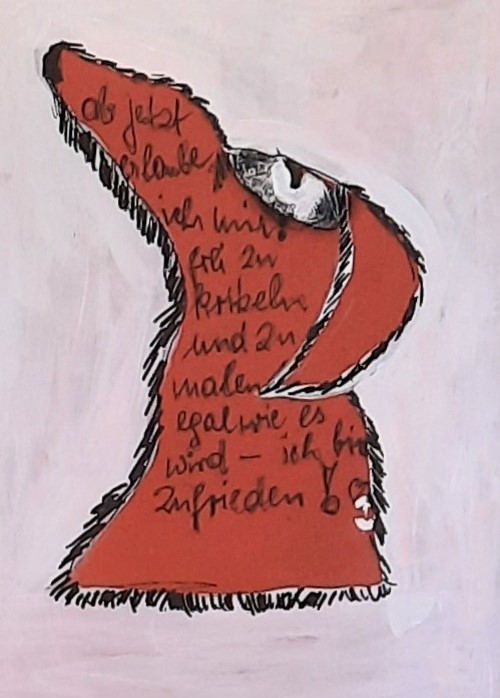 ab jetzt
erlaube
ich mir
frei zu
kribbeln
und zu
malen
egal wie es
wird – ich bin
zufrieden!